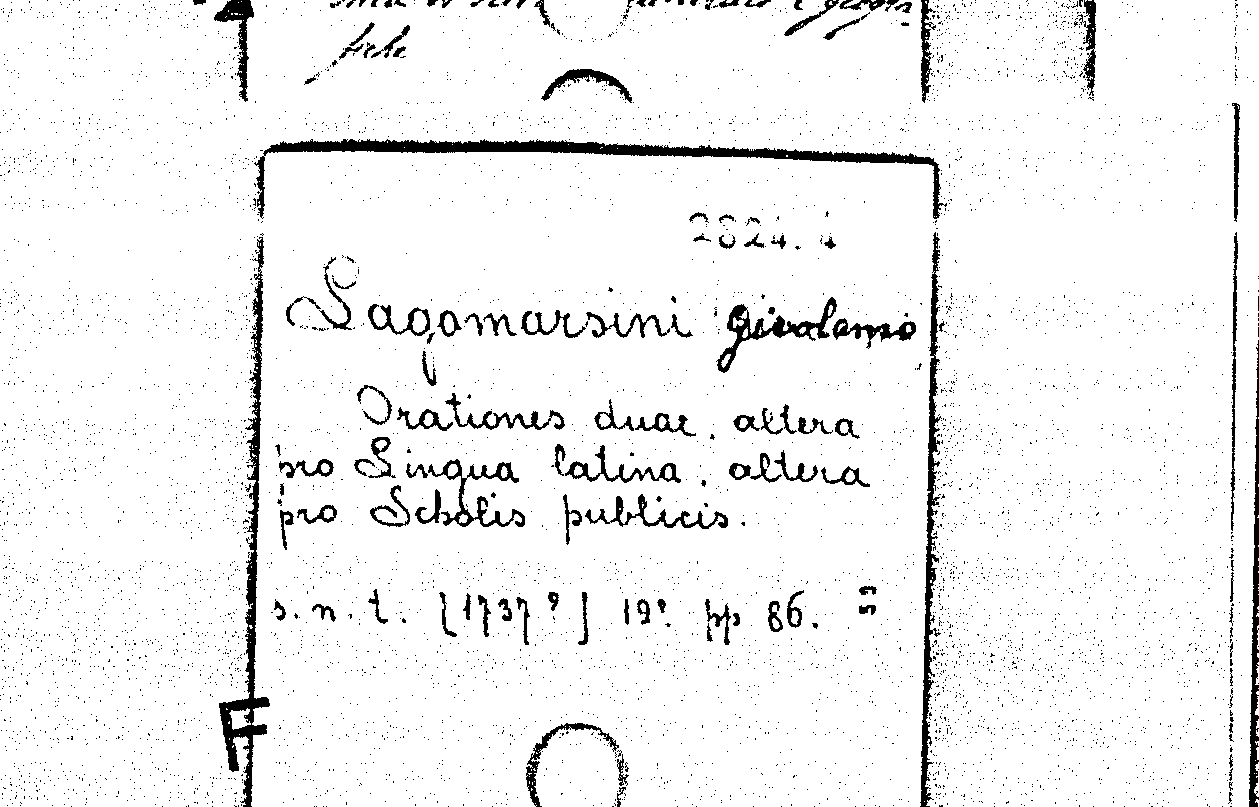 fiche
2824.4
Lagomarsini Girolamo
Orationes duae, altera
pro Lingua latina, altera
pro Scholis publicis.
s.n.t. [1737?] 19º. pp 86.
F